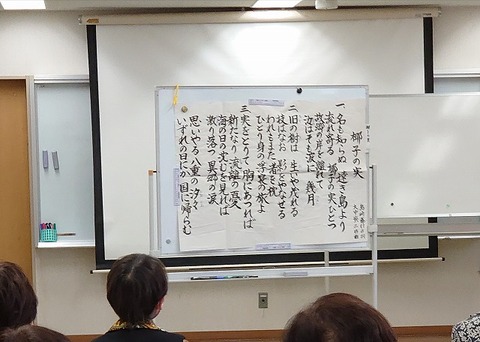 椰子の実
島崎藤村作詞
大中寅二作曲
一、名も知らぬ 遠き島より
流れ寄る 椰子の実ひとつ
故郷の岸を 離れて
汝はそも波に 幾月
二、旧の樹は 生いや茂れる
枝はなお 影をやなせる
われもまた 渚を枕
ひとり身の 浮寝の旅よ
三、実をとりて 胸にあつれば
新たなり 流離の憂
海の日の 沈むを見れば
激り落つ 異郷の涙
思いやる 八重の汐々
いずれの日にか 国に帰らむ